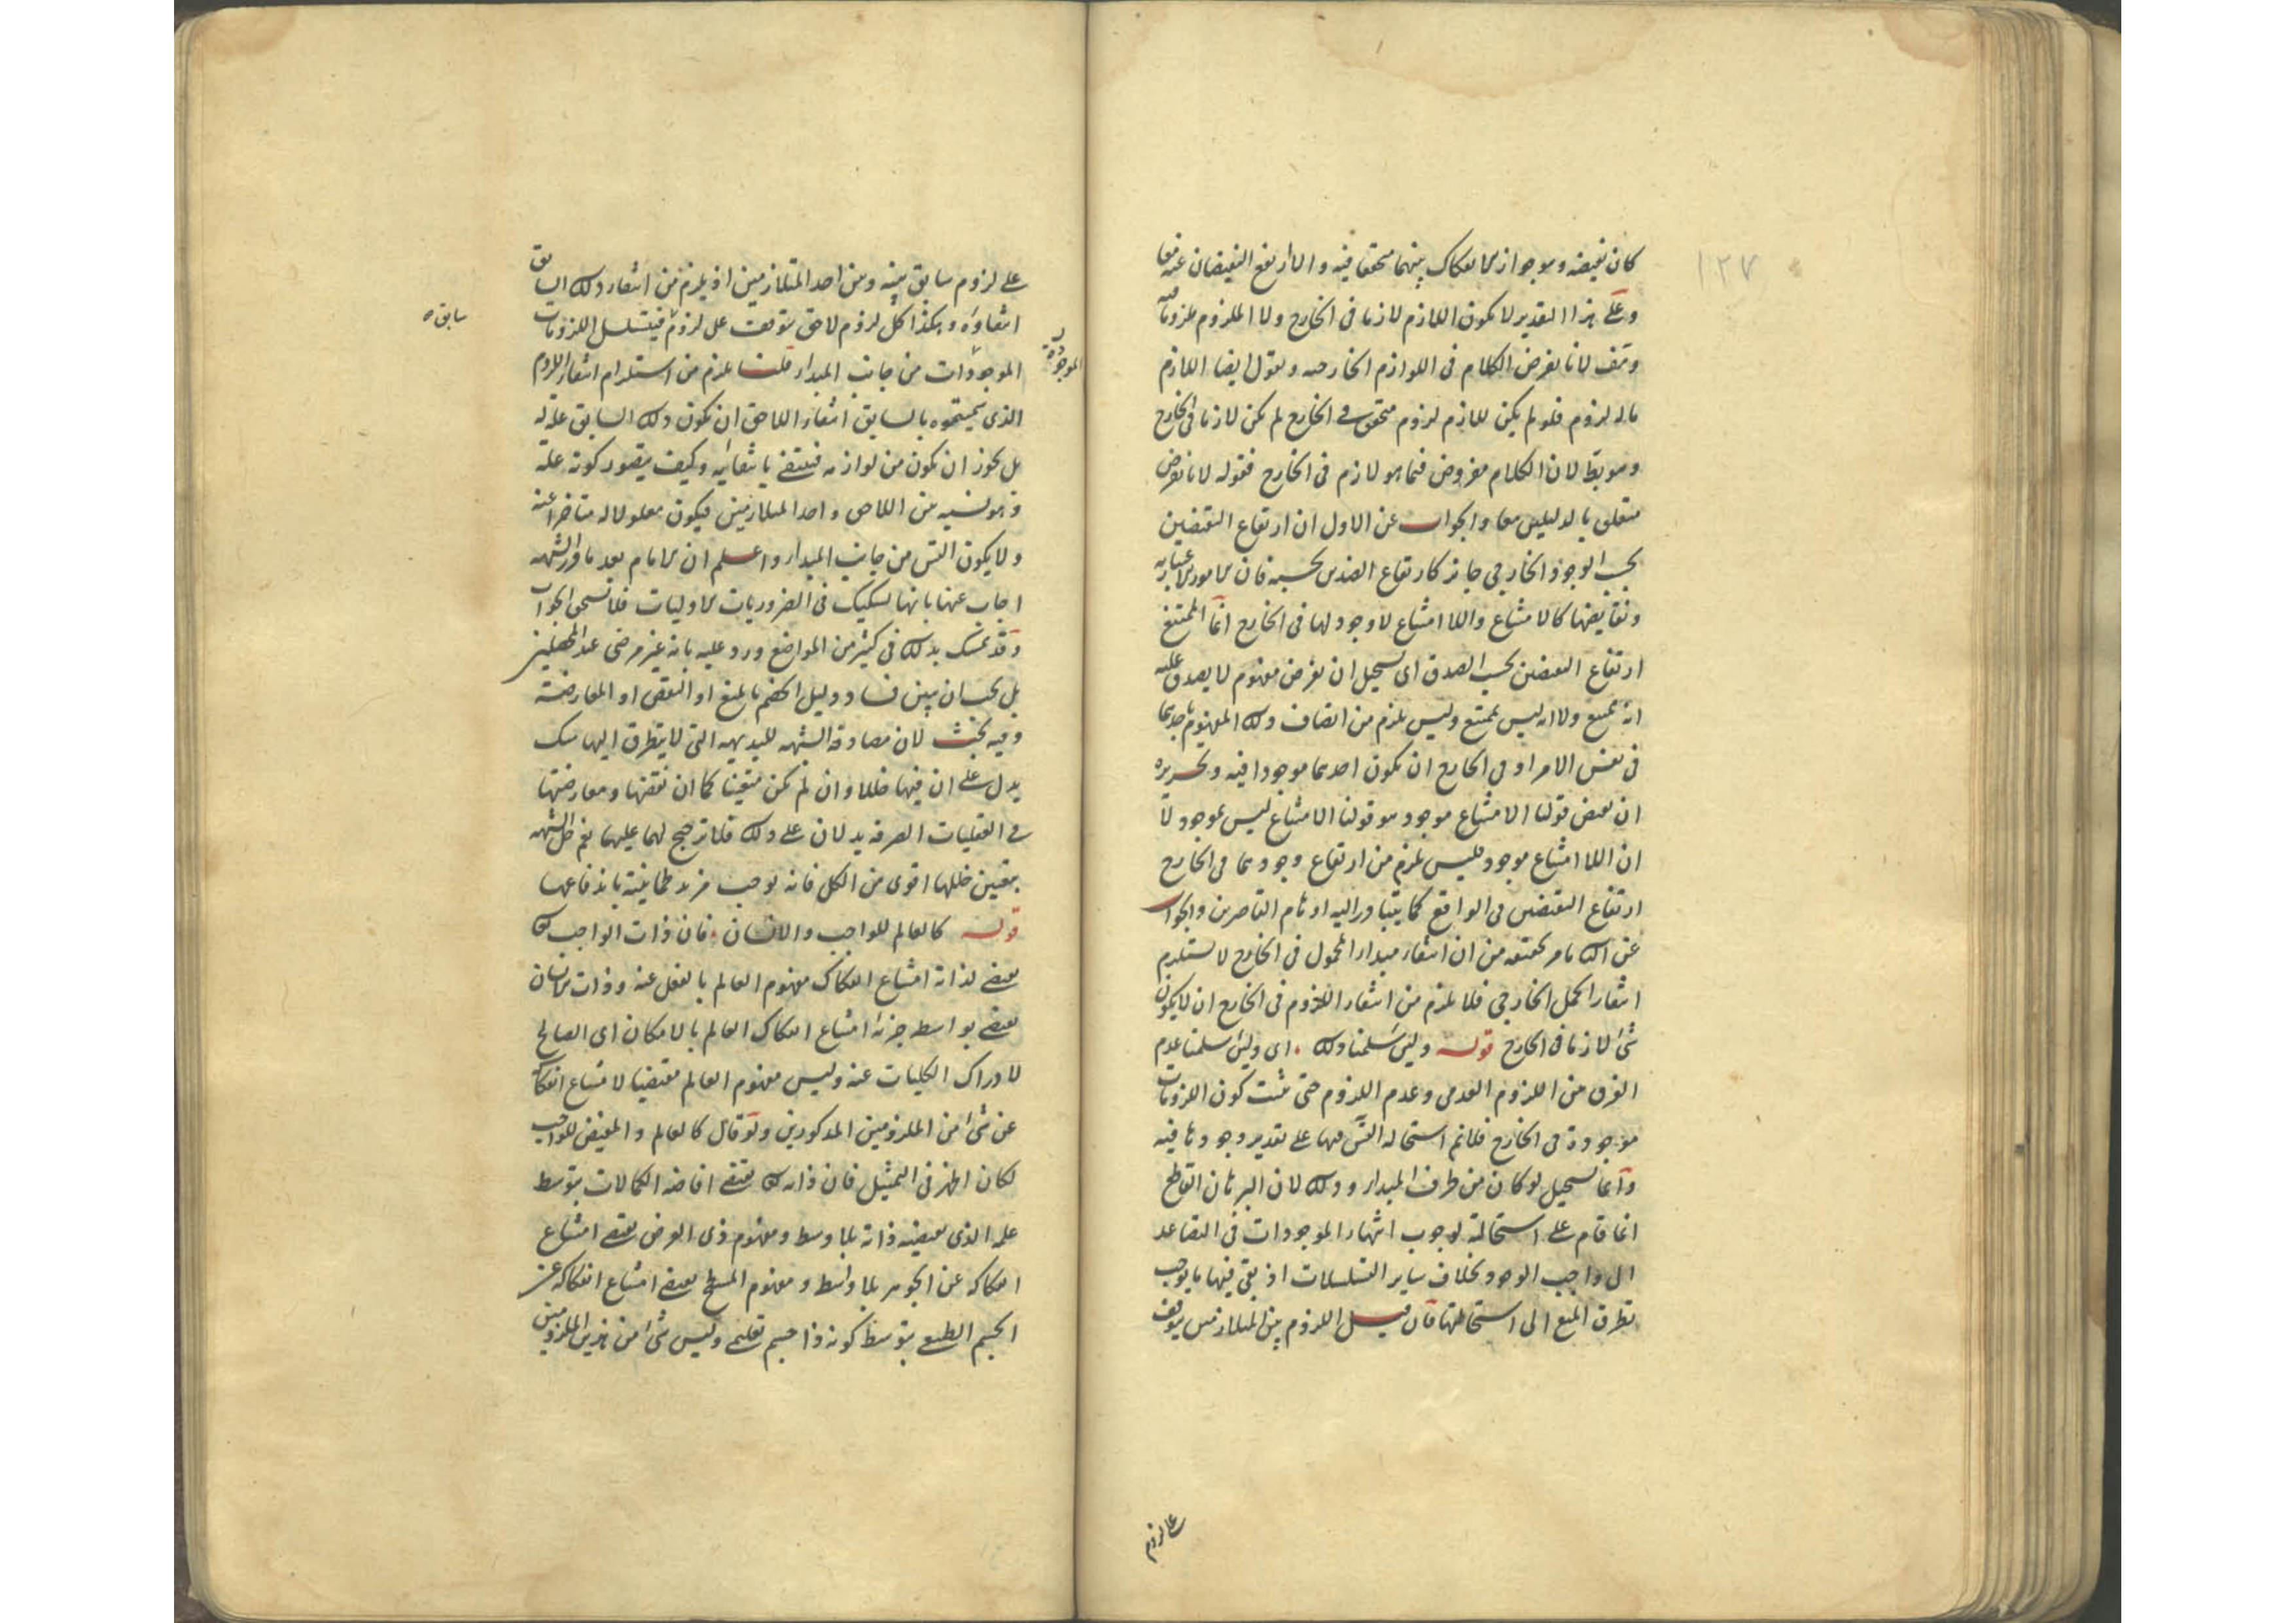 ١٢٧
كان نقيضه وهو جواز الانفكاك بينهما متحققا فيه والا ارتفع النقيضان عنه معا
وعلى هذا التقدير لا يكون اللازم لازما في الخارج ولا الملزوم ملزوما فيه
وهف لانا نفرض الكلام في اللوازم الخارجية ونقول ايضا اللازم
ماله لزوم فلو لم يكن للازم لزوم متحقق في الخارج لم يكن لازما في الخارج
وهو بط لان الكلام مفروض فيما هو لازم في الخارج فقوله لانا نفرض
متعلق بالدليلين معا والجواب عن الاول ان ارتفاع النقيضين
بحسب الوجود الخارجي جايز كارتفاع الضدين بحسبه فان الامور الاعتبارية
ونقايضها كالامتناع واللاامتناع لا وجود لها في الخارج انما الممتنع
ارتفاع النقيضين بحسب الصدق اى يستحيل ان نفرض مفهوم لا يصدق عليه
انه ممتنع ولا انه ليس بممتنع وليس يلزم من اتصاف ذلك المفهوم باحدهما
في نفس الامر او في الخارج ان يكون احدهما موجودا فيه وتحريره
ان نقيض قولنا الامتناع موجود هو قولنا الامتناع ليس بموجود لا
ان اللاامتناع موجود فليس يلزم من ارتفاع وجودهما في الخارج
ارتفاع النقيضين في الواقع كما يتبادر اليه اوهام القاصرين والجواب
عن الثاني ما مر تحقيقه من ان انتفاء مبداء المحمول في الخارج لا يستلزم
انتفاء الحمل الخارجي فلا يلزم من انتفاء اللزوم في الخارج ان لا يكون
شئ لازما في الخارج قوله ولئن سلمنا ذلك اى ولئن سلمنا عدم
الفرق من اللزوم العدمي وعدم اللزوم حتى يثبت كون اللزومات
موجودة في الخارج فلانم استحالة التس فيها على تقدير وجودها فيه
وانما يستحيل لو كان من طرف المبداء وذلك لان البرهان القاطع
انما قام على استحالته لوجوب انتهاء الموجودات في التصاعد
الى واجب الوجود بخلاف ساير التسلسلات اذ بقي فيها ما يوجب
تطرق المنع الى استحالتها فان قيل اللزوم بين المتلازمين يتوقف
على لزوم
على لزوم سابق بينه وبين احد المتلازمين اذ يلزم من انتفاء ذلك السابق
انتفاؤه وهكذا كل لزوم لاحق يتوقف على لزوم فيتسلسل اللزومات
سابق ه
الموجودة
الموجودات من جانب المبداء قلت يلزم من استلزام انتفاء اللزوم
الذى سميتموه بالسابق انتفاء اللاحق ان يكون ذلك السابق علة له
بل يجوز ان يكون من لوازمه فينتفى بانتفائه وكيف يتصور كونه علة
وهو نسبة من اللاحق واحد المتلازمين فيكون معلولا له متاخرا عنه
ولا يكون التس من جانب المبداء واعلم ان الامام بعد ما قرر الشبهة
اجاب عنها بانها تشكيك في الضروريات الاوليات فلا تستحق الجواب
وقد تمسك بذلك في كثير من المواضع ورد عليه بانه غير مرضى عند المحصلين
بل يجب ان يبين فساد دليل الخصم بالمنع او النقض او المعارضة
وفيه بحث لان مصادمة الشبهة للبديهية التي لا يتطرق اليها شك
يدل على ان فيها خللا وان لم يكن متعينا كما ان نقضها ومعارضتها
في العقليات الصرفة يدلان على ذلك فلا ترجيح لهما عليها نعم حل الشبهة
بتعيين خللها اقوى من الكل فانه يوجب مزيد طمانينة باندفاعها
قوله كالعالم للواجب والانسان فان ذات الواجب تعالى
يقتضى لذاته امتناع انفكاك مفهوم العالم بالفعل عنه وذات الانسان
يقتضى بواسطة جزئه امتناع انفكاك العالم بالامكان اى الصالح
لادراك الكليات عنه وليس مفهوم العالم مقتضيا لامتناع انفكاكه
عن شئ من الملزومين المذكورين ولو قال كالعالم والمفيض للواجب
لكان اظهر في التمثيل فان ذاته تعالى يقتضى افاضة الكمالات بتوسط
علمه الذى يقتضيه ذاته بلا وسط ومفهوم ذى العرض يقتضى امتناع
انفكاكه عن الجوهر بلا واسطة ومفهوم المسطح يقتضى امتناع انفكاكه عن
الجسم الطبيعى بتوسط كونه ذا جسم تعليمى وليس شئ من هذين الملزومين